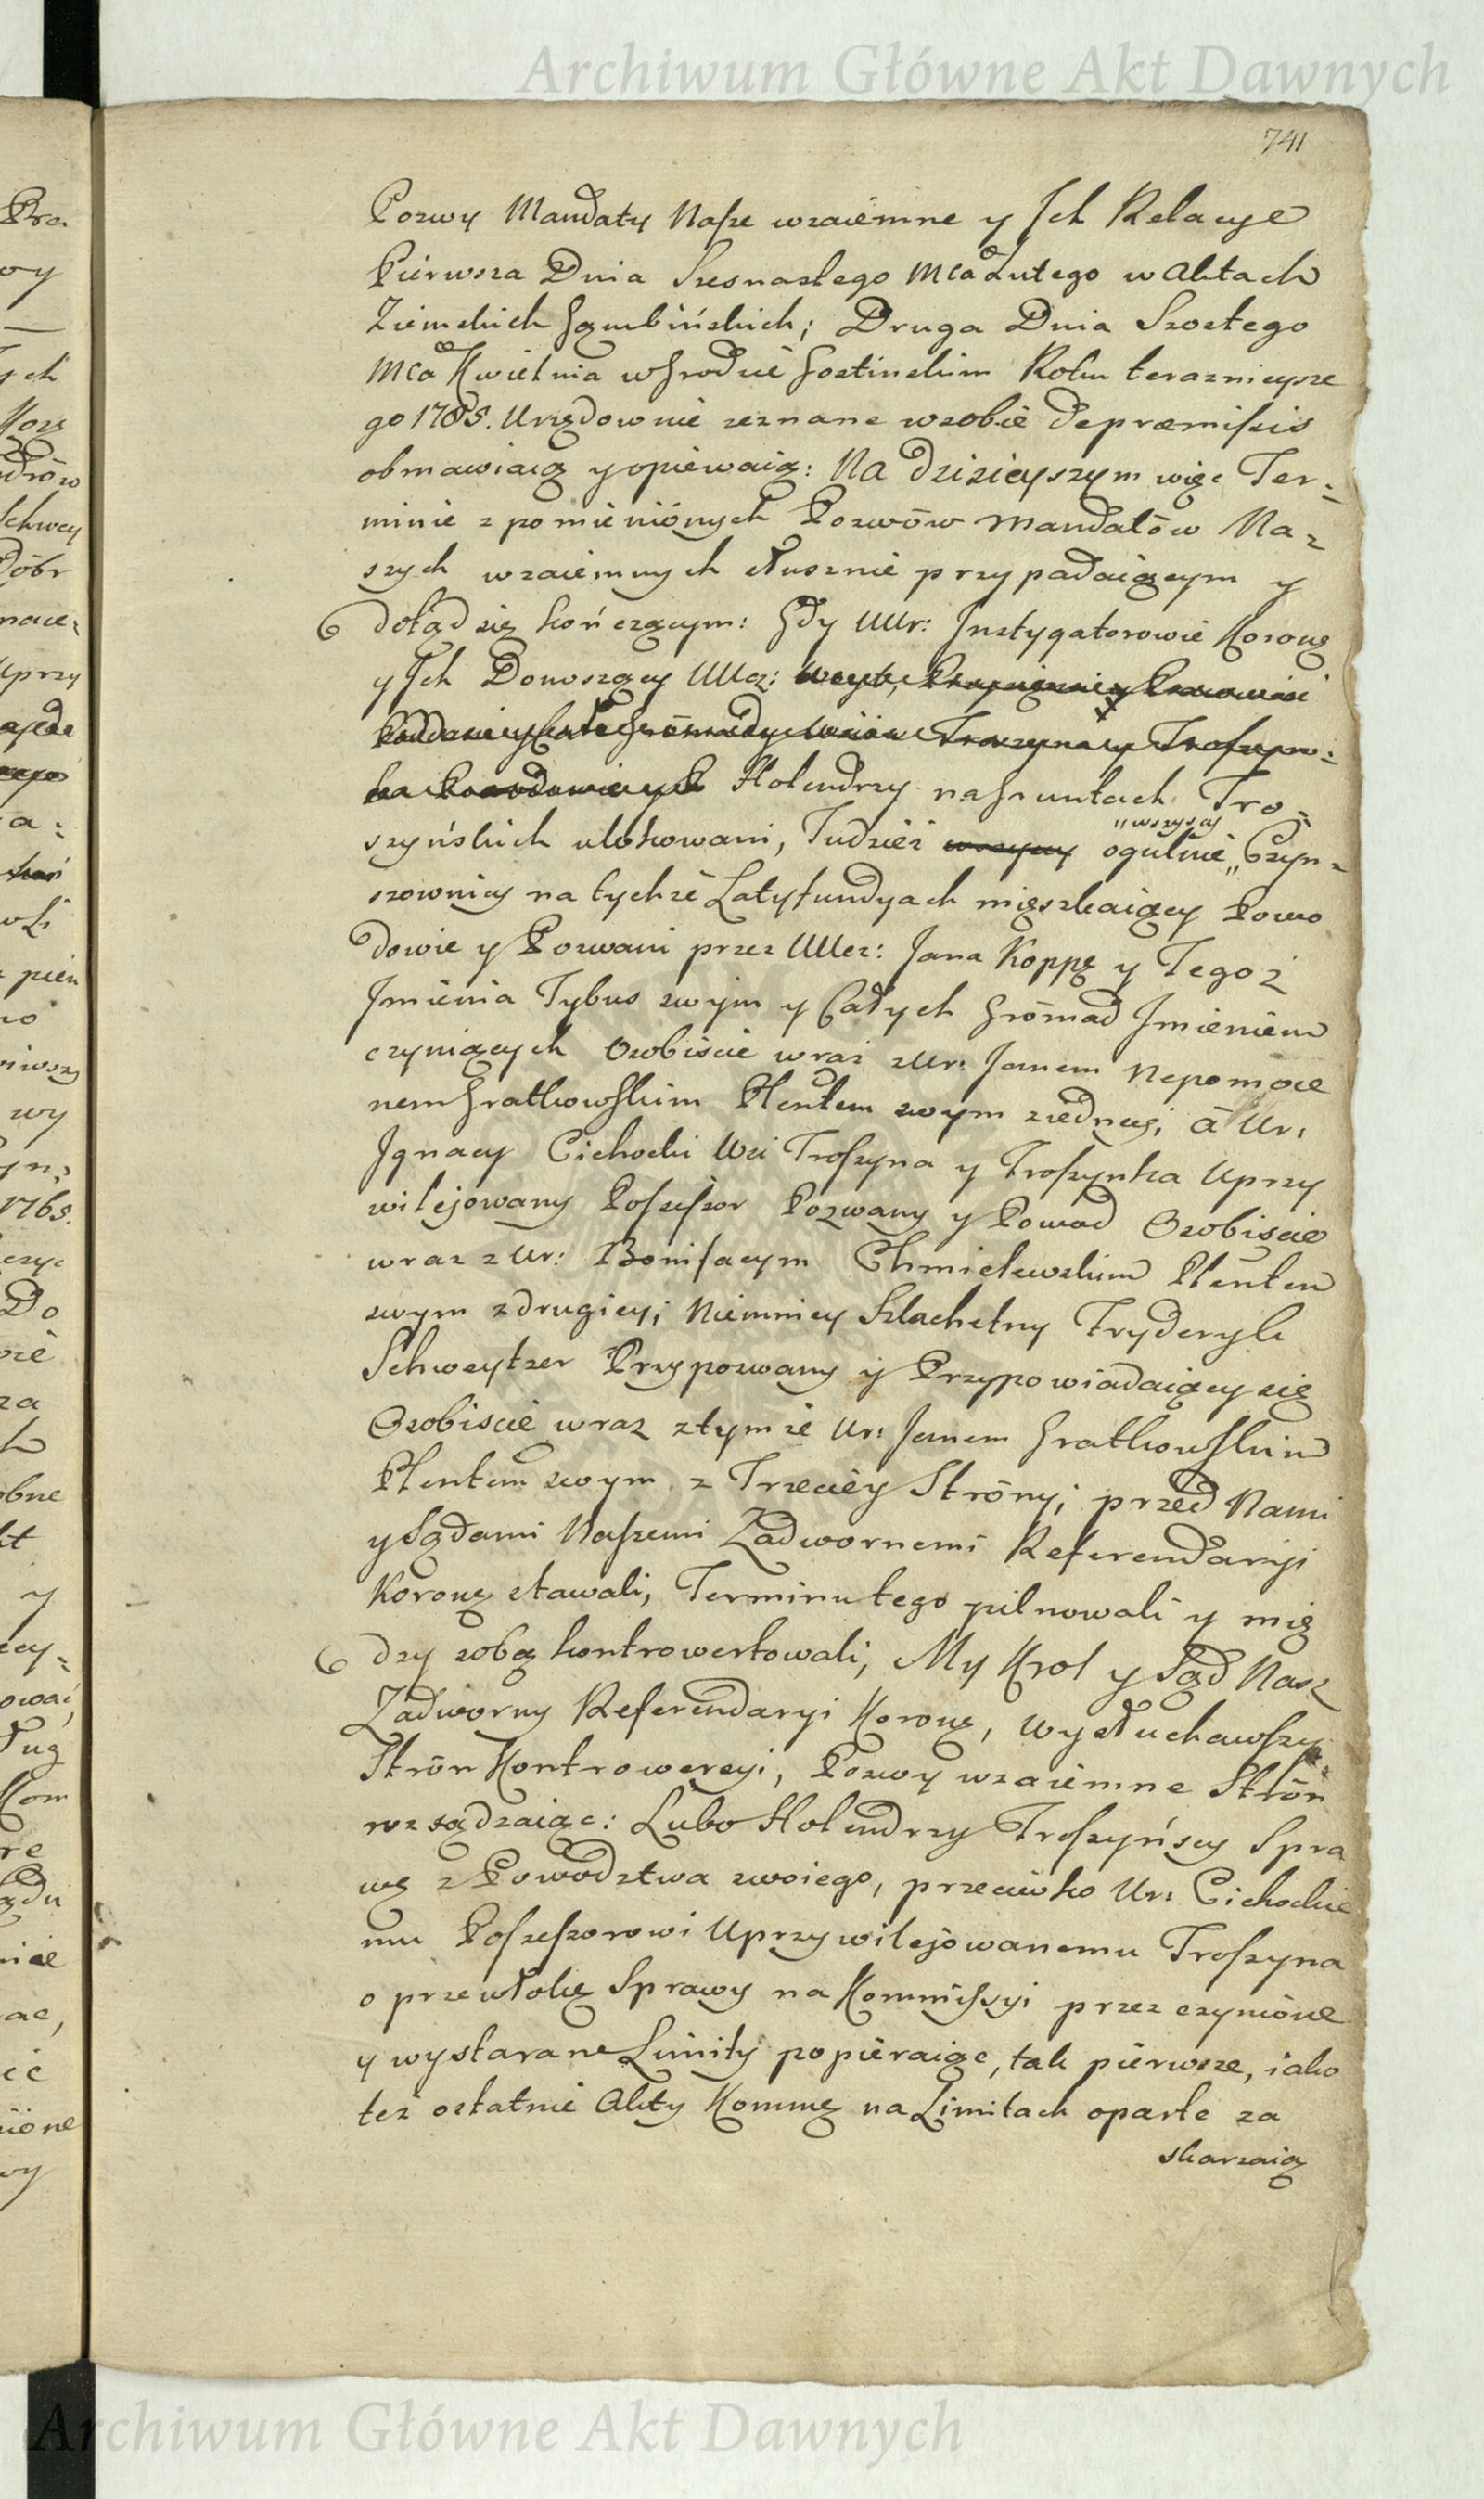 Archiwum Główne Akt Dawnych
741
Pozwy Mandaty Nasze wzaiemne y Ich Relacye
Pierwsza Dnia Szesnastego Mca Lutego w Aktach
Ziemskich Gąmbińskich; Druga Dnia Szostego
Mca Kwietnia w Grodzie Gostinskim Roku teraznieysze
go 1785. Urzędownie zeznane w sobie de præmissis
obmawiaią y opiewaią: Na dzisieyszym więc Ter=
minie z pomienionych Pozwów Mandatów Na=
szych wzaiemnych słusznie przypadaiącym y
dotąd się kończącym: Gdy UUr: Instygatorowie Koroñ
y Ich Donoszący UUcz:
Holendrzy na Gruntach Tro=
szyńskich ulokowani, Tudzież wszyscy ogulnie „Czyn=
„wszyscy
szownicy na tychże Latyfundyach mięszkaiący Powo
dowie y Pozwani przez UUcz: Jana Koppę y Tegoż
Imienia Tybus swym y Całych Grómad Imieniem
czyniących Osobiscie wraz z Ur: Janem Nepomoce
nem Gratkowskim Plentem swym z iedney; á Ur:
Ignacy Cichocki Wsi Troszyna y Troszynka Uprzy
wilejowany Possessor Pozwany y Powod Osobiscie
wraz z Ur: Bonifacym Chmielewskim Plentem
swym z drugiey; Niemniey Szlachetny Fryderyk
Schweytzer Przypozwany y Przypowiadaiący się
Osobiscie wraz z tymże Ur: Janem Gratkowskim
Plentem swym z Trzeciéy Stróny; przed Nami
y Sądami Naszemi Zadwornemi Referendaryi
Koroñ stawali, Terminu tego pilnowali y mię
dzy sobą kontrowertowali, My Krol y Sąd Nasz
Zadworny Referendaryi Koroñ, wysłuchawszy
Strón Kontrowersyi, Pozwy wzaiemne Strón
rozsądzaiąc: Lubo Holendrzy Troszyńscy Spra
wę z Powodztwa swoiego, przeciwko Ur: Cichockie
mu Possessorowi Uprzywilejowanemu Troszyna
o przewłokę Sprawy na Kommissyi przez czynióne
y wystarane Limity popieraiąc, tak pierwsze, iako
też ostatnie Akty Kommę na Limitach oparte za
skarzaią
Archiwum Główne Akt Dawnych